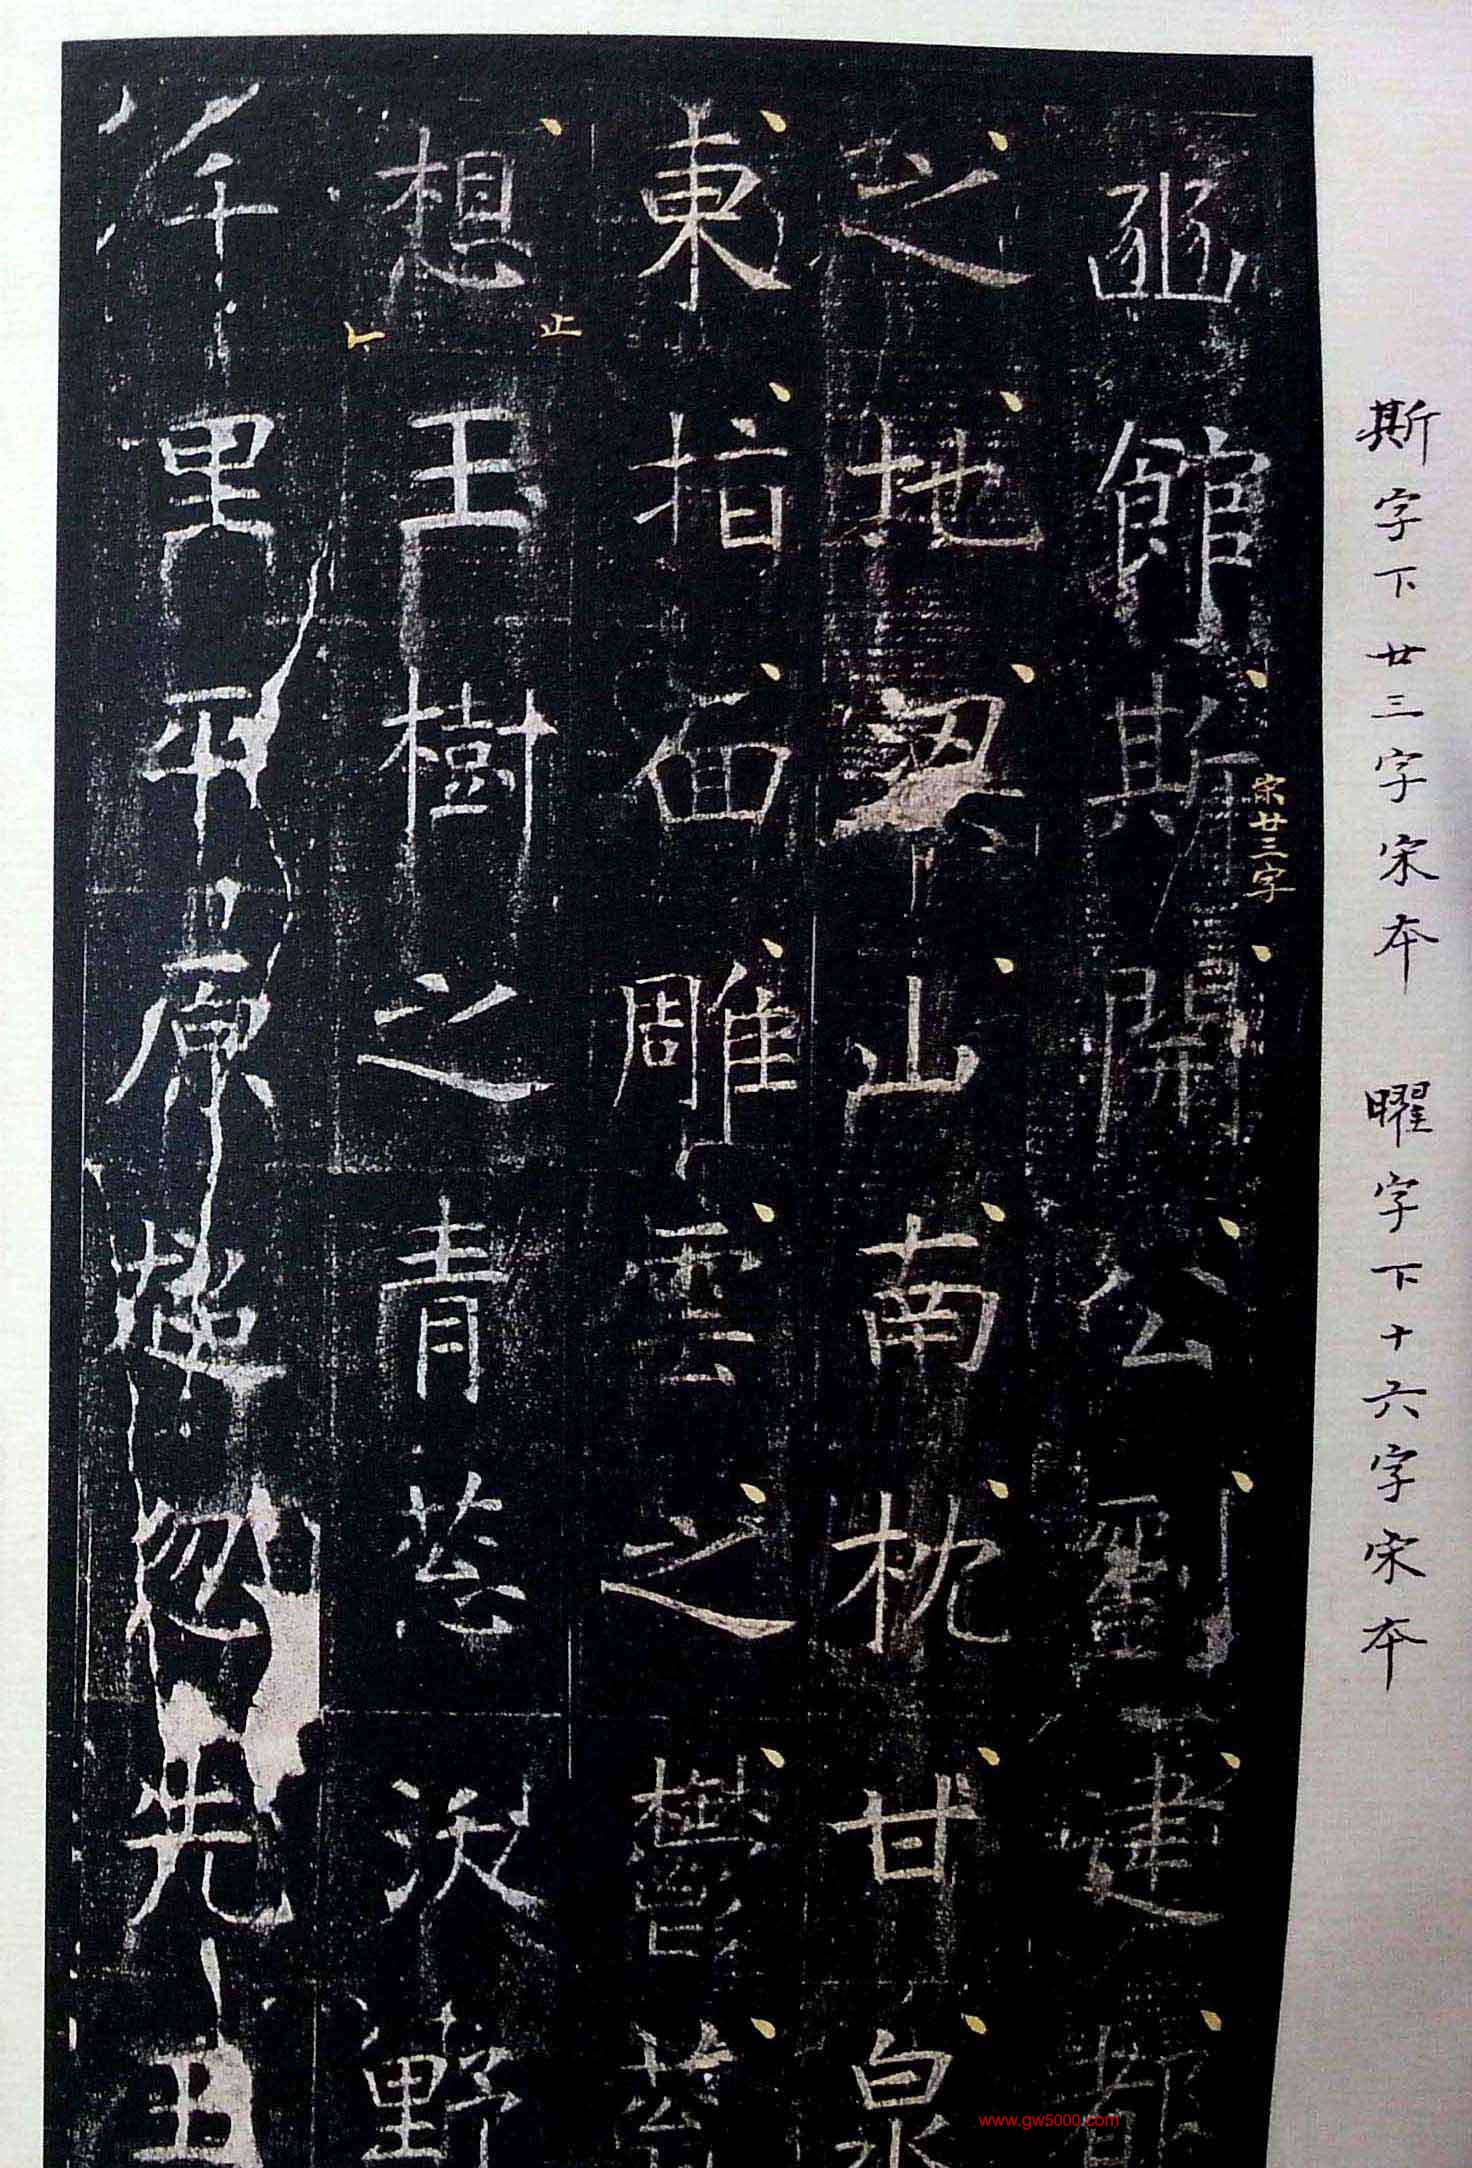 斯字下廿三字宋本 曜字下十六字宋本
宋廿三字
豳館斯開公劉建都
之地梁山南枕甘泉
東指面雕雲之鬱蓊
止
想玉樹之青葱沃野
千里平原超忽先
www.gw5000.com